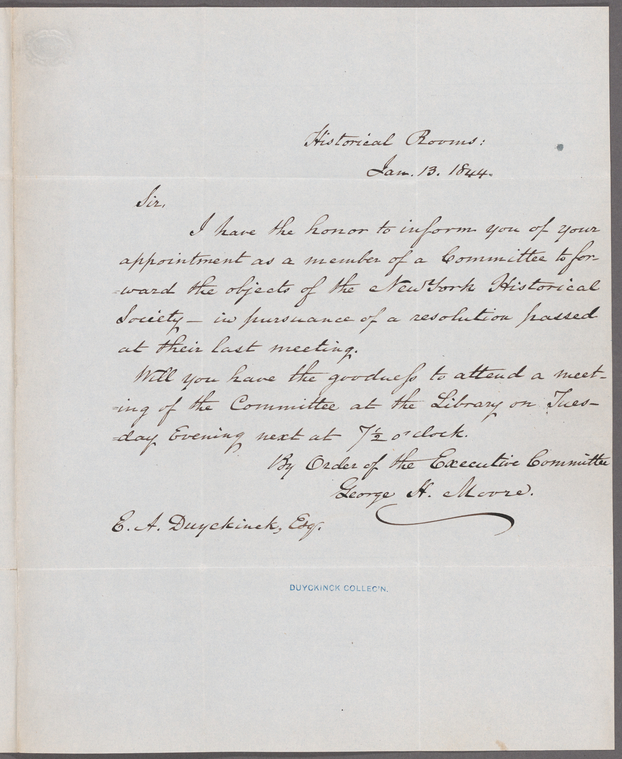 Historical Rooms:
Jan. 13. 1844.
Sir,
I have the honor to inform you of your
appointment as a member of a Committee to for-
-ward the objects of the New York Historical
Society — in pursuance of a resolution passed
at their last meeting.
Will you have the goodness to attend a meet-
-ing of the Committee at the Library on Tues-
-day Evening next at 7½ o'clock.
By Order of the Executive Committee
George H. Moore.
E. A. Duyckinck, Esq.
DUYCKINCK COLLEC'N.